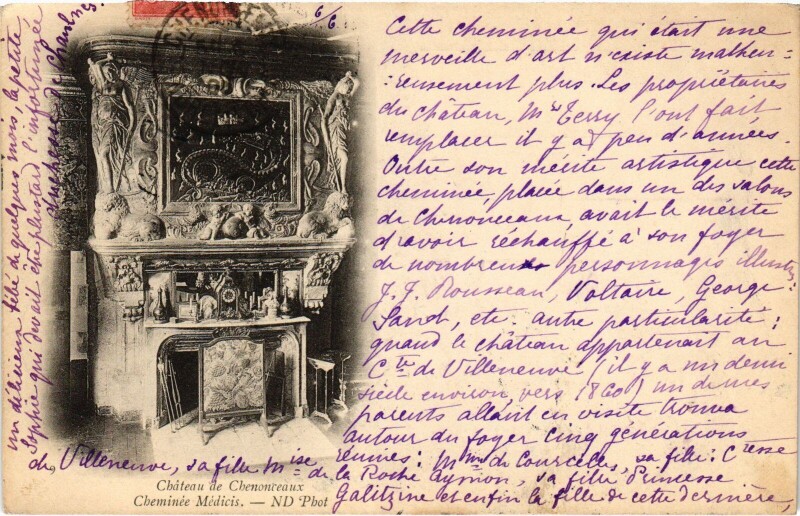 Cette cheminée qui était une
merveille d'art n'existe malheu=
=reusement plus. Les propriétaires
du château, Mrs Terry, l'ont fait
remplacer il y a peu d'années.
Outre son mérite artistique cette
cheminée, placée dans un des salons
de Chenonceaux avait le mérite
d'avoir réchauffé à son foyer
de nombreux personnages illustres:
J. J. Rousseau, Voltaire, George
Sand, etc. autre particularité:
quand le château appartenait au
Cte de Villeneuve (il y a un demi
siècle environ, vers 1860) un de mes
parents allant en visite trouva
autour du foyer cinq générations
réunies: Mme de Courcelles, sa fille: Ctesse
de Villeneuve, sa fille Mise de la Roche Aymon, sa fille Princesse
Galitzine et enfin la fille de cette dernière,
un délicieux bébé de quelques mois, la petite
Sophie qui devait être plus tard l'infortunée
duchesse de Chaulnes.
6/6
Château de Chenonceaux
Cheminée Médicis. — ND Phot